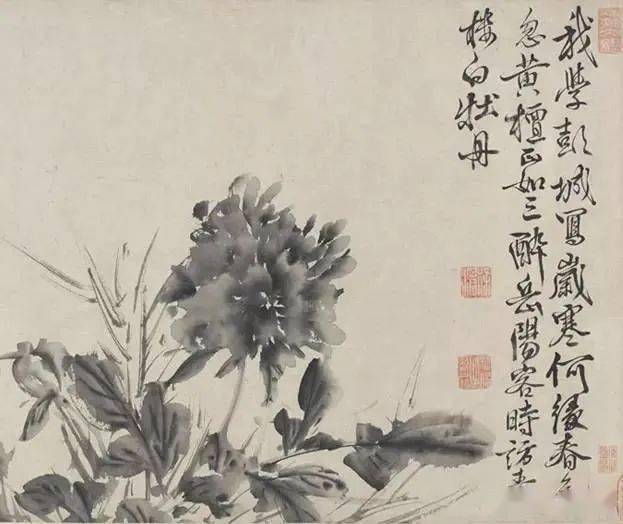 我學彭城寫歲寒何緣春
忽黄檀正如三醉岳陽客時訪
樓白牡丹